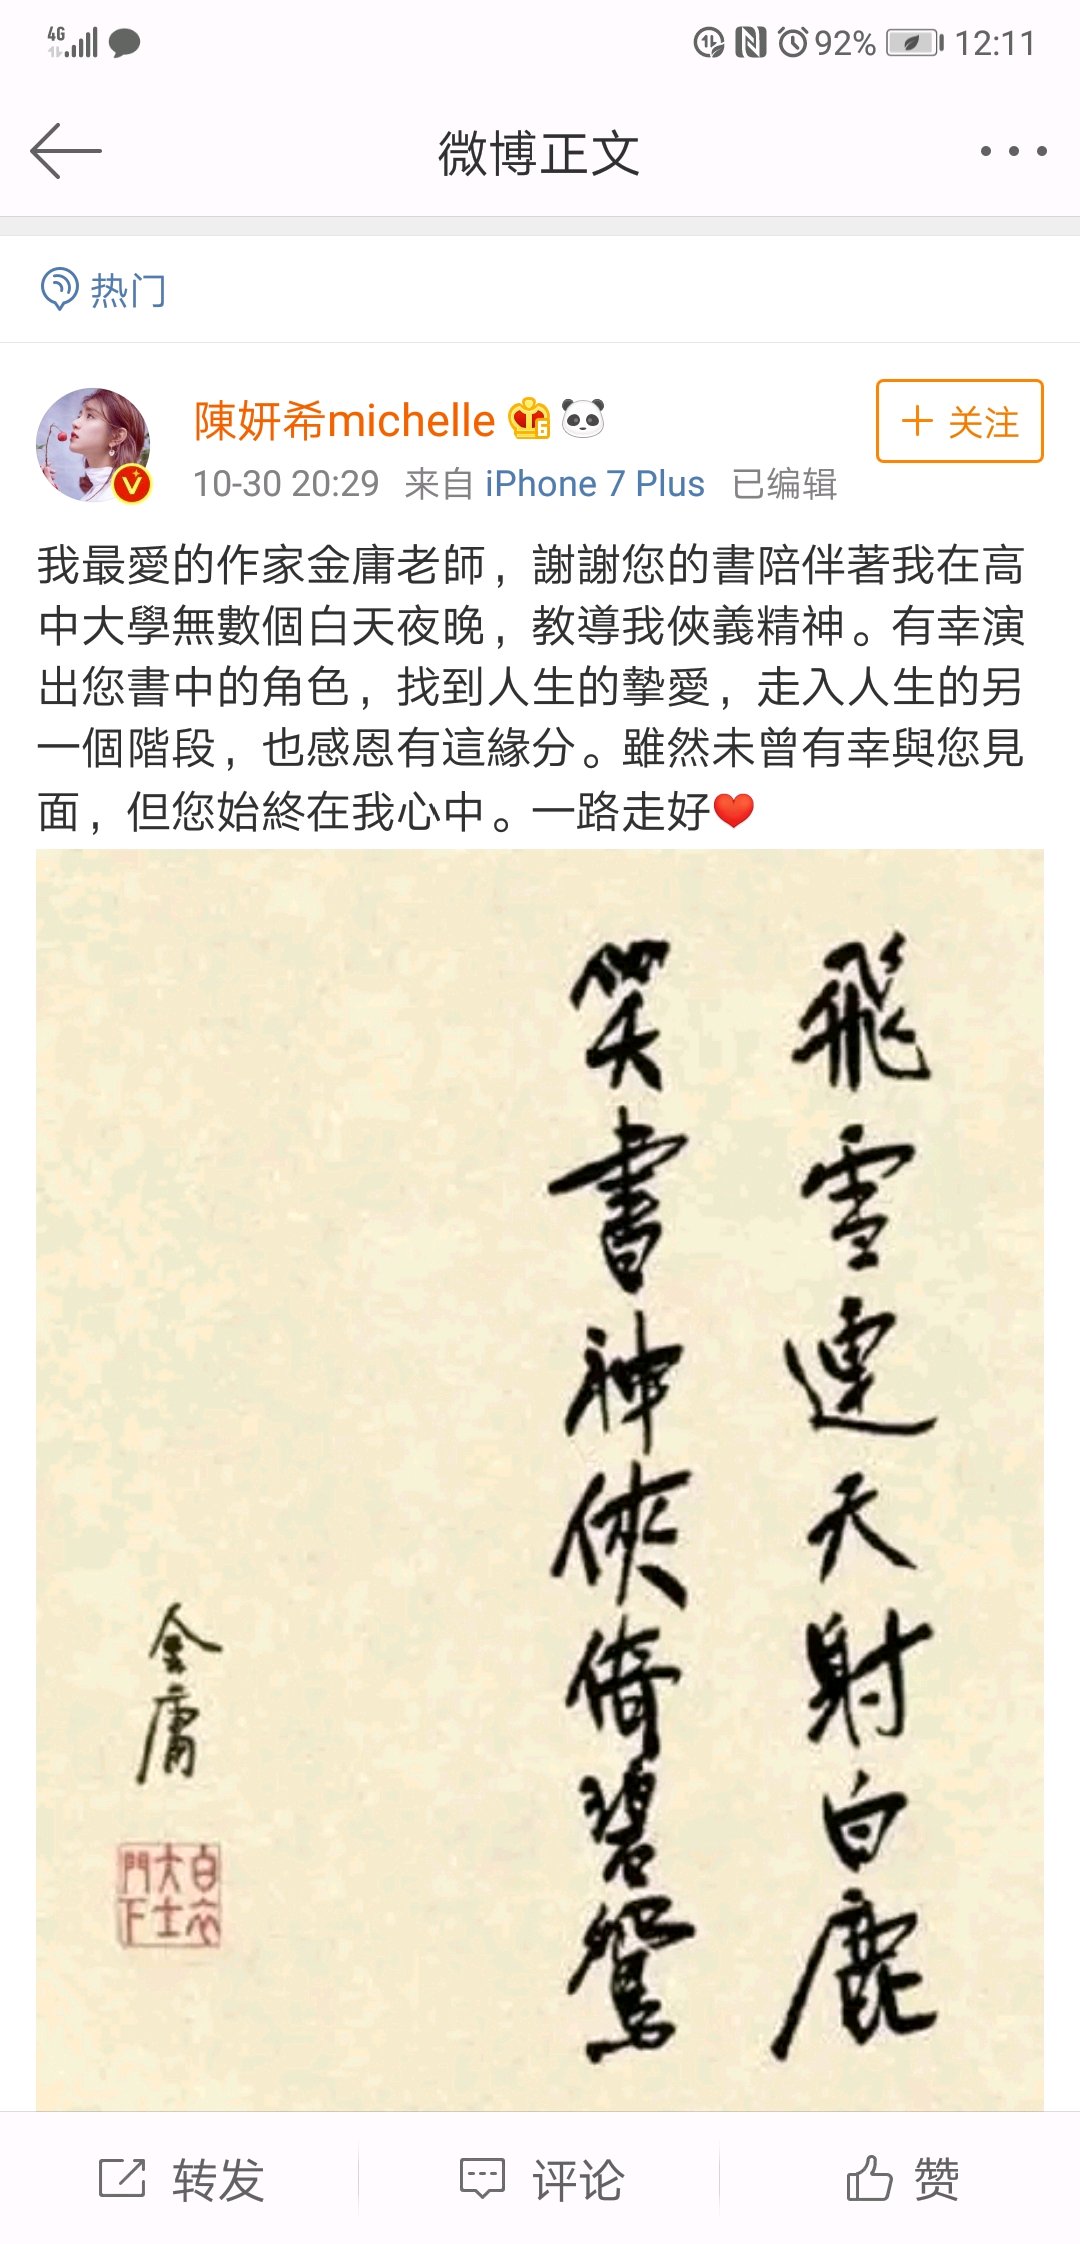 4G 92% 12:11
微博正文
热门
陳妍希michelle 6
+ 关注
10-30 20:29 来自 iPhone 7 Plus 已编辑
我最愛的作家金庸老師，謝謝您的書陪伴著我在高
中大學無數個白天夜晚，教導我俠義精神。有幸演
出您書中的角色，找到人生的摯愛，走入人生的另
一個階段，也感恩有這緣分。雖然未曾有幸與您見
面，但您始終在我心中。一路走好❤
飛雪連天射白鹿
笑書神俠倚碧鴛
金庸
白衣
大士
門下
转发 评论 赞